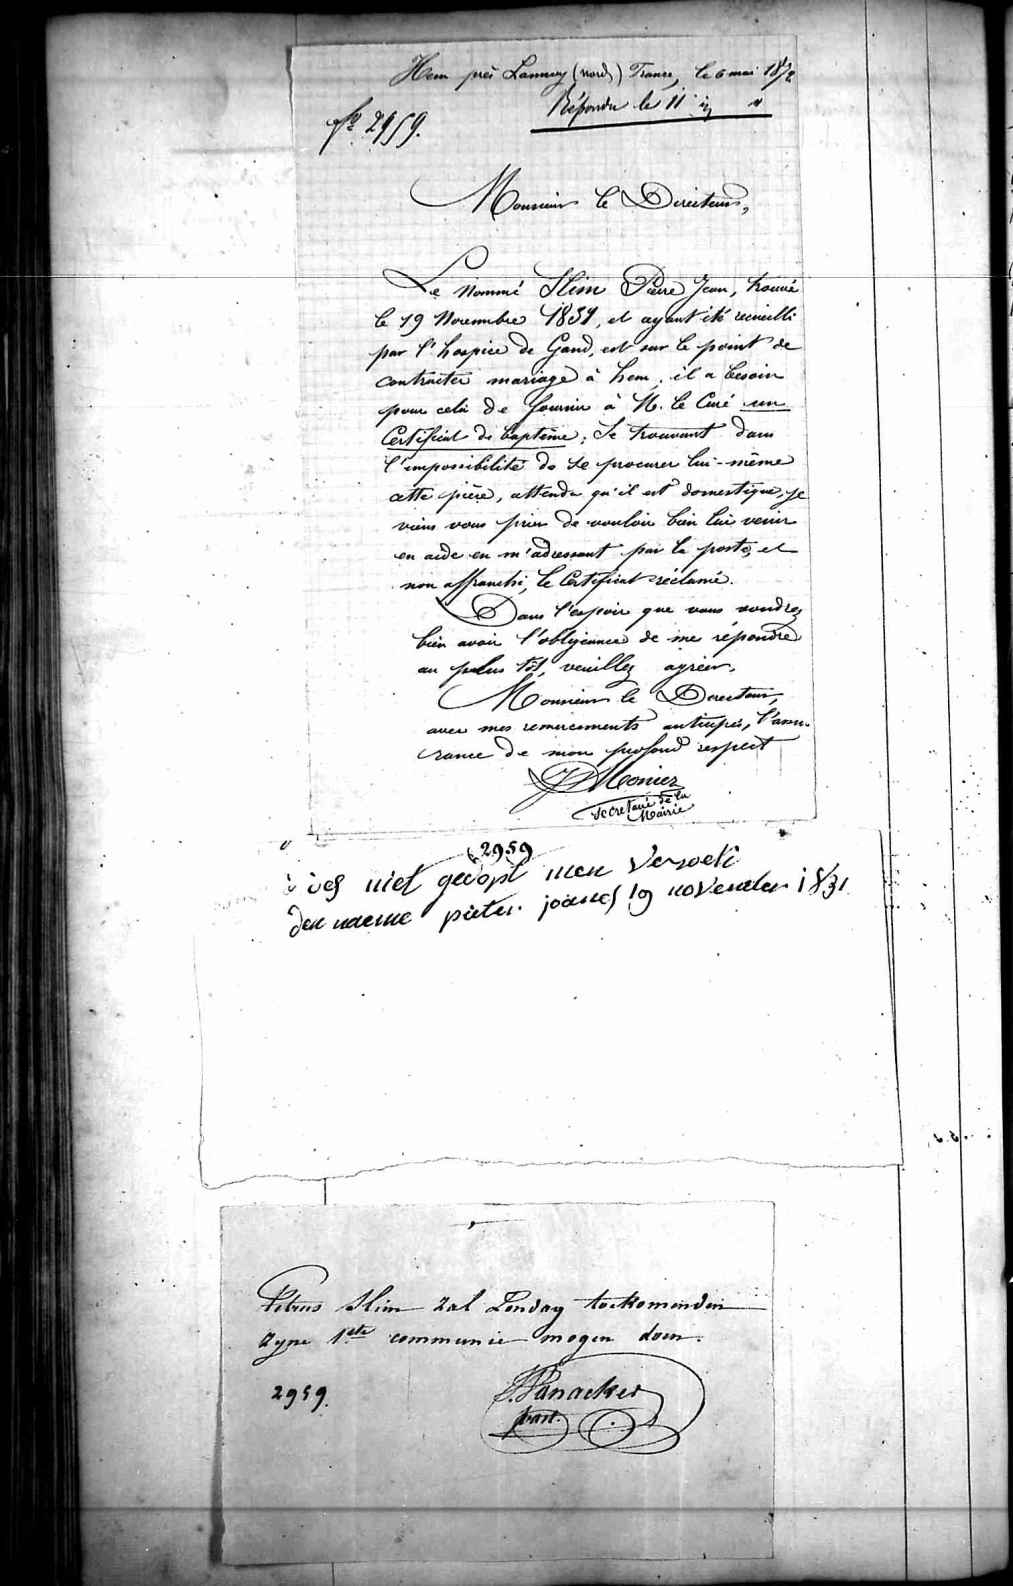 Hem près Lannoy (nord) France, le 6 mai 1872
Répondu le 11 "
No 2959.
Monsieur le Directeur,
Le nommé Slim Pierre Jean, trouvé
le 19 Novembre 1831, et ayant été recueilli
par l'hospice de Gand, est sur le point de
contracter mariage à hem, il a besoin
pour cela de fournir à M. le Curé un
Certificat de baptême; Se trouvant dans
l'impossibilité de se procurer lui-même
cette pièce, attendu qu'il est domestique, je
viens vous prier de vouloir bien lui venir
en aide en m'adressant par la poste, et
non affranchi, le Certificat réclamé.
Dans l'espoir que vous voudrez
bien avoir l'obligeance de me répondre
au plus tôt, veuillez agréer,
Monsieur le Directeur,
avec mes remerciements anticipés, l'assu-
rance de mon profond respect
Moniez
Secrétaire de la
Mairie
(2959)
is niet gedopt men versoekt
den naeme pieter joannes 19 november 1831
Petrus Slim zal Zondag toekomenden
zyne 1ste communie mogen doen.
2959.
Vanacker
past.